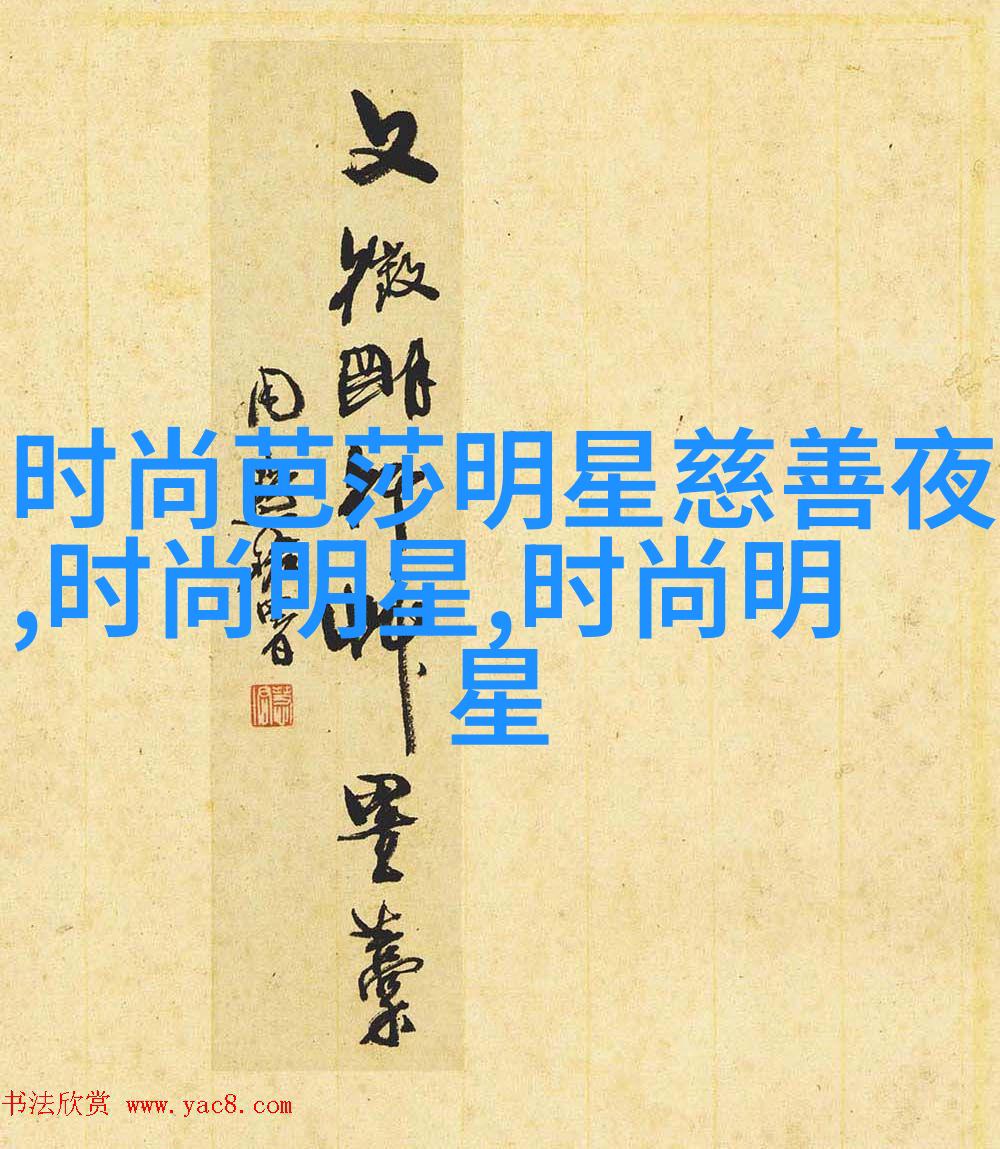 文徵明詩帖墨藁
时尚芭莎明星慈善夜
,时尚明星,时尚明
星
书法欣赏 www.yac8.com